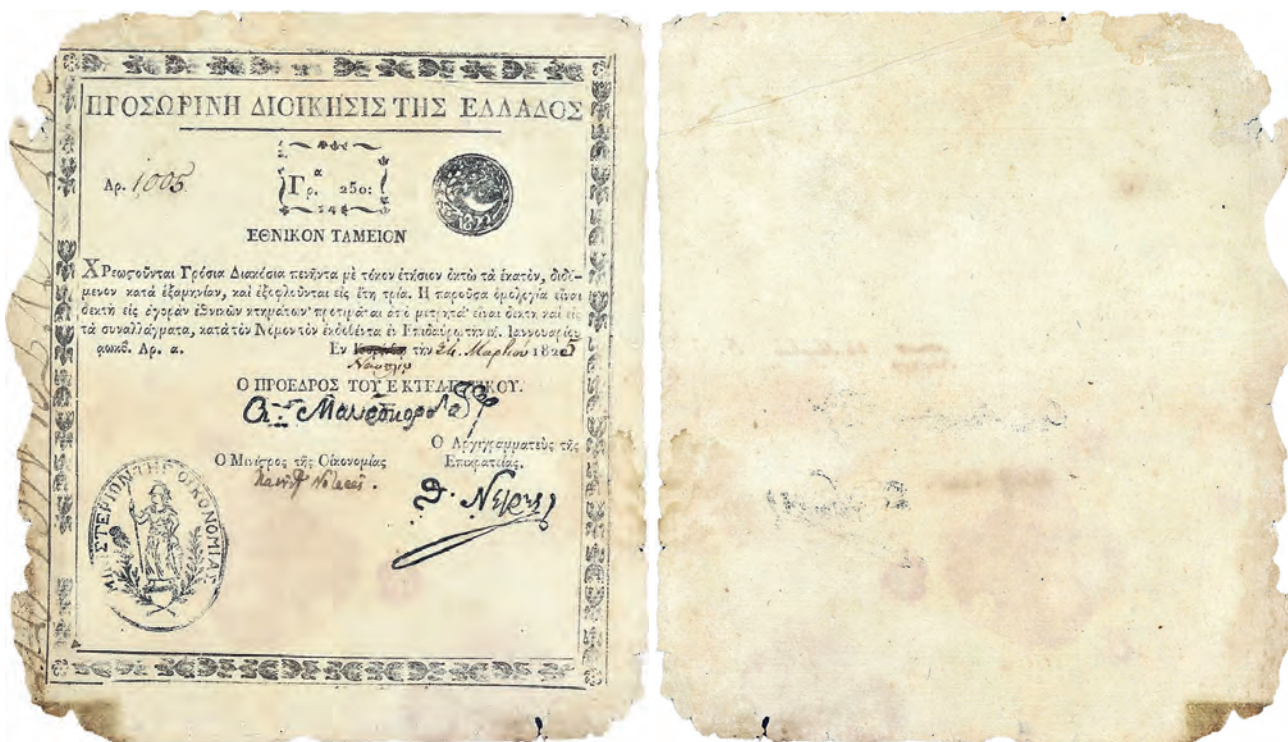 ΠΡΟΣΩΡΙΝΗ ΔΙΟΙΚΗΣΙΣ ΤΗΣ ΕΛΛΑΔΟΣ
Αρ. 1005
Γρ.α 250:
1822
ΕΘΝΙΚΟΝ ΤΑΜΕΙΟΝ
ΧΡεωςοῦνται Γρόσια Διακόσια πενῆντα μὲ τόκον ἐτήσιον ὀκτὼ τὰ ἑκατὸν, διδό-
μενον κατὰ ἑξαμηνίαν, καὶ ἐξοφλοῦνται εἰς ἔτη τρία. Η παροῦσα ὁμολογία εἶναι
δεκτὴ εἰς ἀγορὰν ἐθνικῶν κτημάτων· προτιμᾶται ἀπὸ μετρητά· εἶναι δεκτὴ καὶ εἰς
τὰ συναλλάγματα, κατὰ τὸν Νόμον τὸν ἐκδοθέντα ἐν Επιδαύρῳ τὴν Ιαννουαρίου
αωκβ. Αρ. α. Εν τὴν 24. Μαρτίου 1825
Ναυπλίῳ
Ο ΠΡΟΕΔΡΟΣ ΤΟΥ ΕΚΤΕΛΕΣΤΙΚΟΥ.
Ο Αρχιγραμματεὺς τῆς
Ο Μινίςρος τῆς Οἰκονομίας Επικρατείας.
ΜΙΝΙΣΤΕΡΙΟΝ ΤΗΣ ΟΙΚΟΝΟΜΙΑΣ